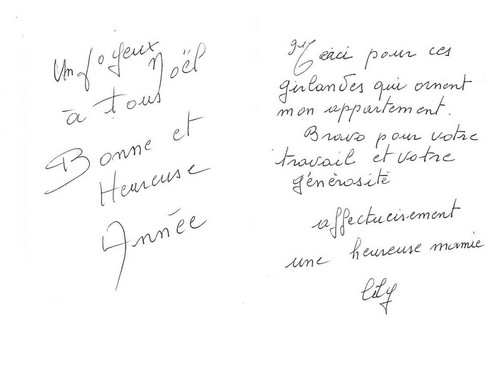 Un joyeux
Noël
à tous
Bonne et
Heureuse
Année
Merci pour ces
girlandes qui ornent
mon appartement.
Bravo pour votre
travail et votre
générosité
affectueisement
une heureuse mamie
Lily